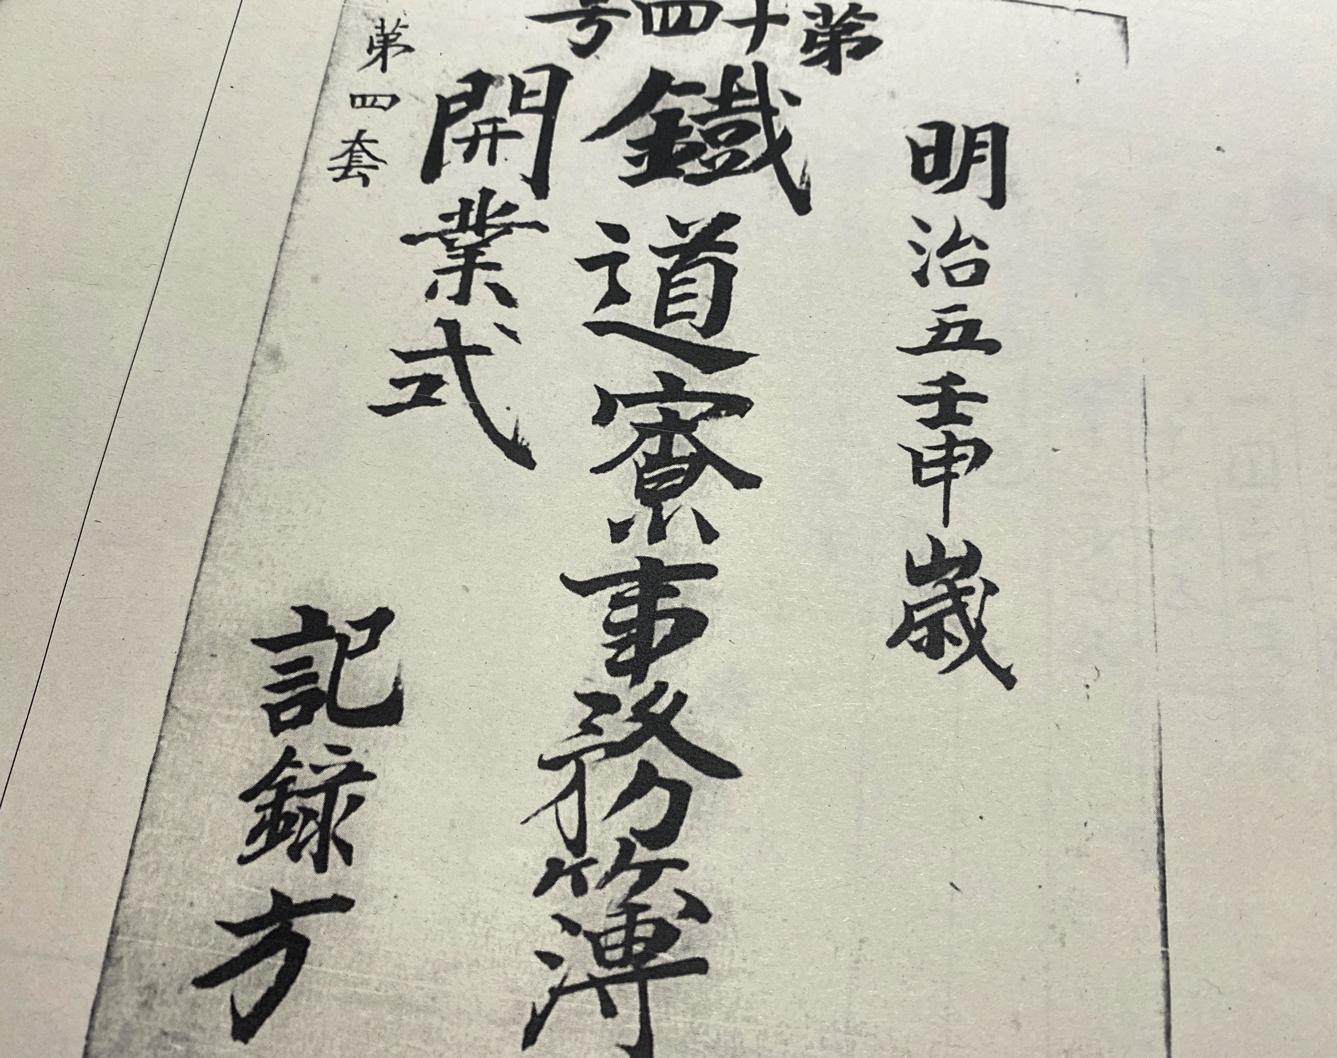 第十四号
明治五壬申歳
鐵道寮事務簿
開業式
第四套
記録方